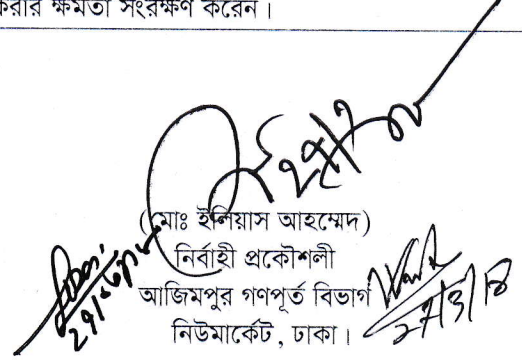 করার ক্ষমতা সংরক্ষণ করেন।
(মোঃ ইলিয়াস আহম্মেদ)
নির্বাহী প্রকৌশলী
আজিমপুর গণপূর্ত বিভাগ
নিউমার্কেট, ঢাকা।
27/3/18